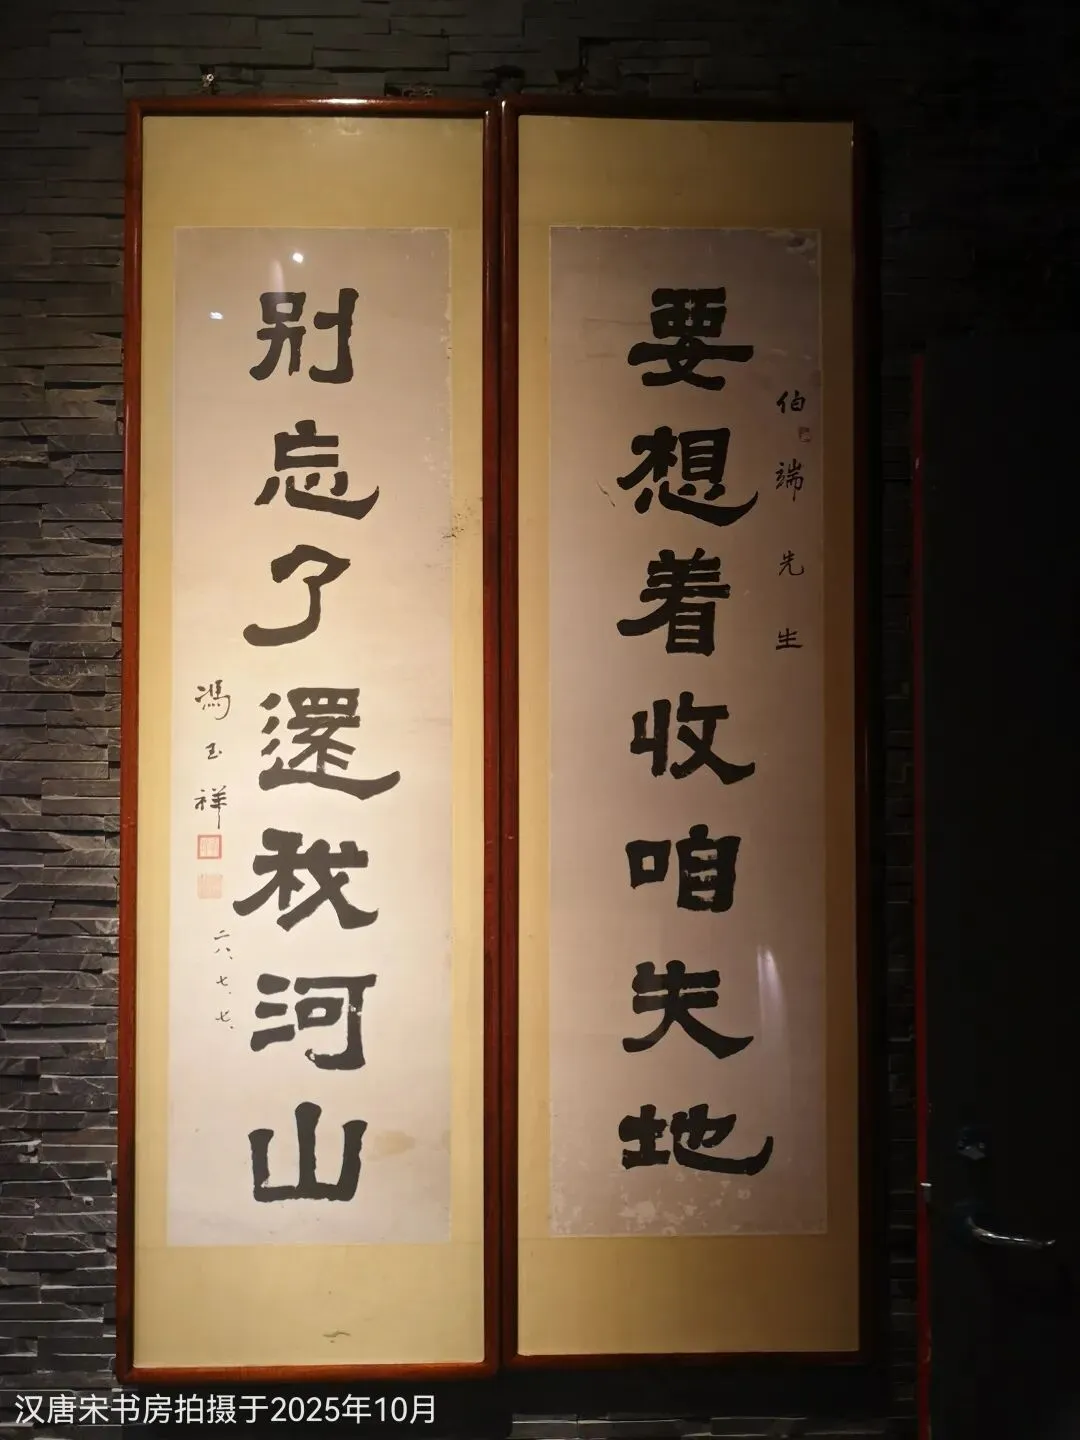 要想着收咱失地
伯端先生
别忘了還我河山
馮玉祥
二八、七、七、
汉唐宋书房拍摄于2025年10月